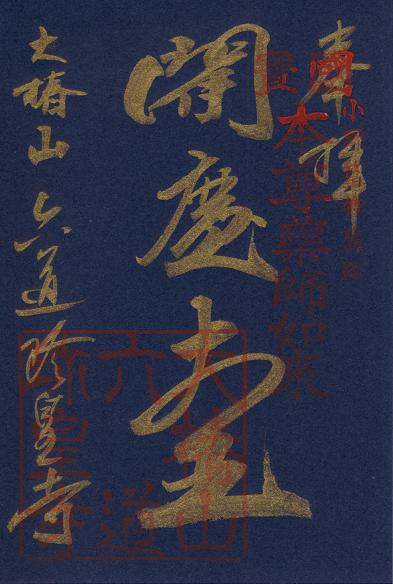 奉拝
本尊藥師如來
閻魔大王
大椿山 六道珍皇寺
大椿山
六道
珍皇寺